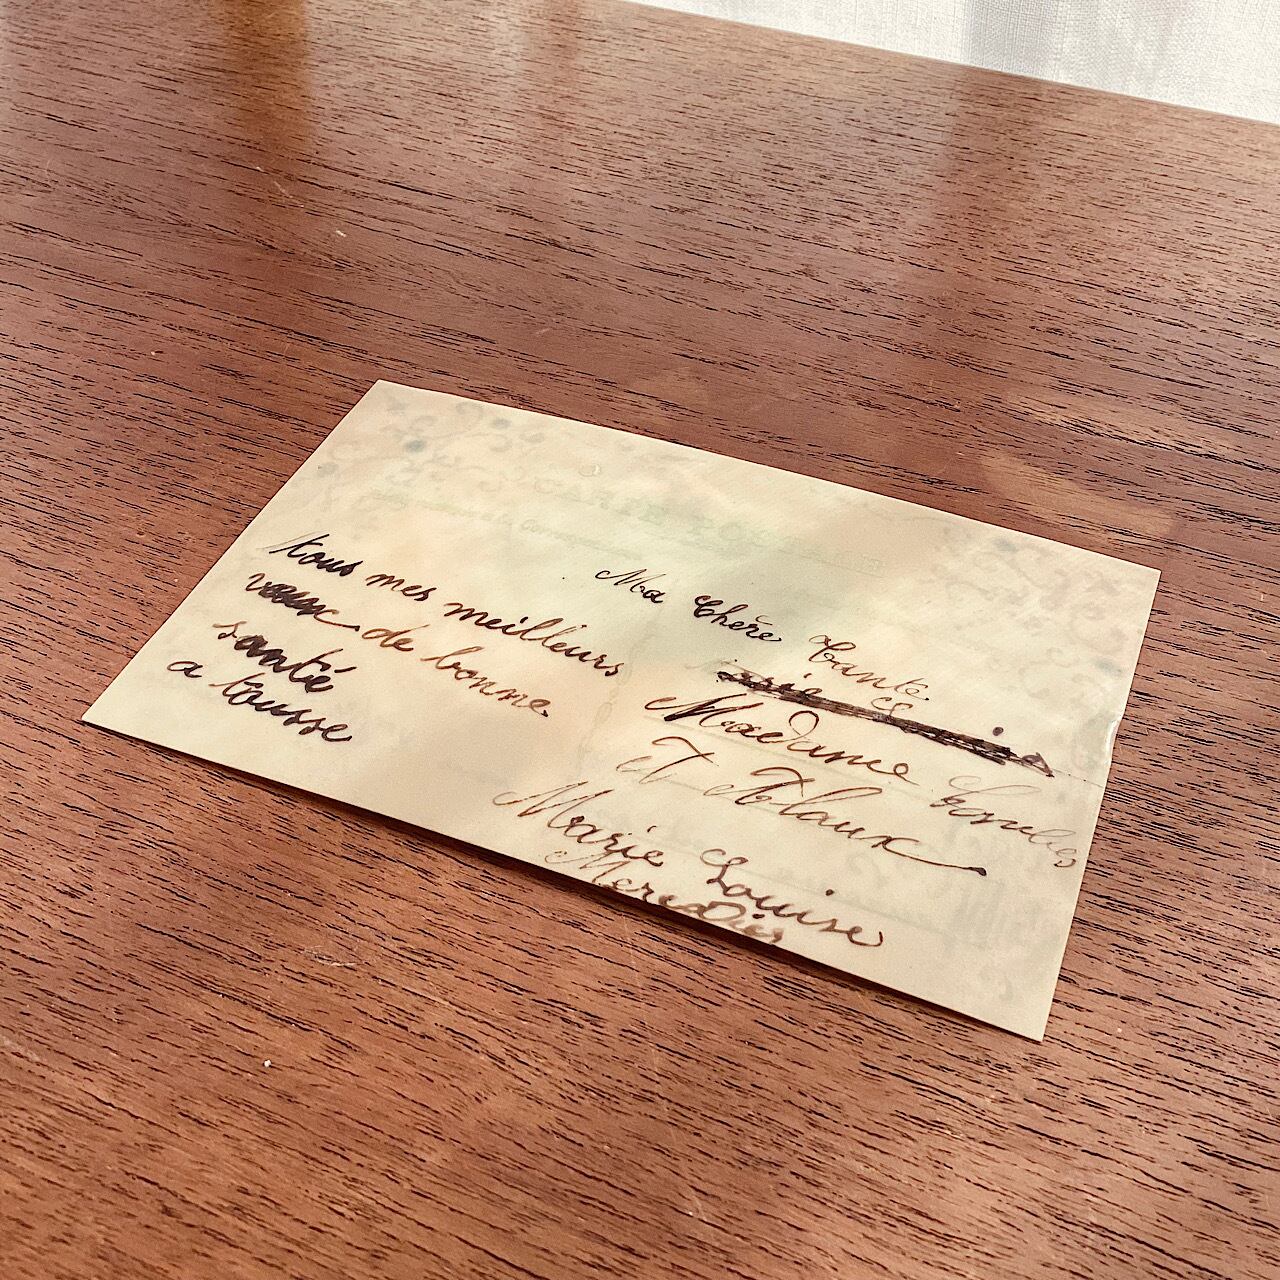 CARTE POSTALE
tous mes meilleurs
vœux de bonne
santé
a tousse
Ma Chère
Tante
Madame
et Alaux
Marie Louise